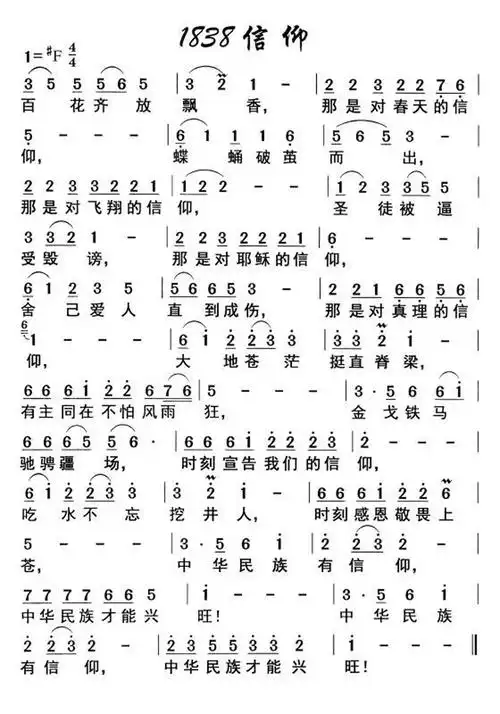 1838 信仰
1=♯F 4/4
3 5 5 5 6 5 | 3 2 1 - | 2 2 3 2 2 7 6 |
百花齐放飘香，那是对春天的信
5 - - - | 6 1 1 1 6 | 5 6 5 3 - |
仰，蝶蛹破茧而出，
2 2 3 3 2 2 1 | 1 2 2 - - | 1 2 3 5 5 |
那是对飞翔的信仰，圣徒被逼
3 3 2 1 - - | 2 3 2 3 2 2 1 | 6 - - - |
受毁谤，那是对耶稣的信仰，
6 1 2 1 | 5 6 6 5 3 - | 2 2 3 5 6 6 5 |
舍己爱人直到成伤，那是对真理的信
6 1 - - - | 6 1 2 2 3 | 3 3 2 1 - |
仰，大地苍茫挺直脊梁，
6 6 6 1 2 2 6 7 6 | 5 - - - | 3 · 5 6 6 1 |
有主同在不怕风雨狂，金戈铁马
6 5 5 2 5 · - | 5 6 6 1 2 2 2 3 | 3 · - - - |
驰骋疆场，时刻宣告我们的信仰，
6 1 2 2 3 | 3 · 2 1 - | 2 2 3 1 2 2 6 |
吃水不忘挖井人，时刻感恩敬畏上
5 - - - | 3 · 5 6 1 | 2 2 3 2 - |
苍，中华民族有信仰，
7 7 7 7 6 6 5 | 1 - - - | 3 · 5 6 1 |
中华民族才能兴旺！中华民族
2 2 3 2 - | 2 3 5 5 3 3 2 | 1 - - - ‖
有信仰，中华民族才能兴旺！